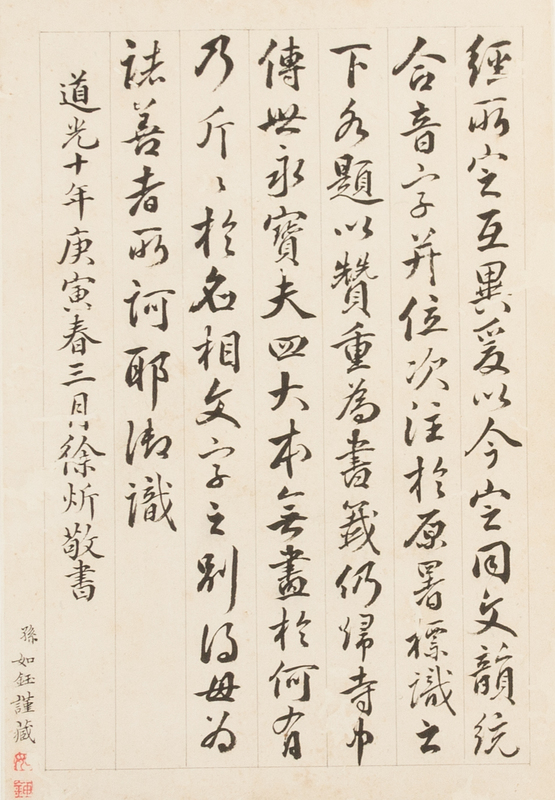 經所定互異爰以今定同文韻統
合音字并位次注於原署標識之
下各題以贊重為書籤仍歸寺中
傳世永寶夫四大本無畫於何有
乃斤〻於名相文字之別得毋為
諸善者所訶耶御識
道光十年庚寅春三月徐炘敬書
孫如鈺謹藏